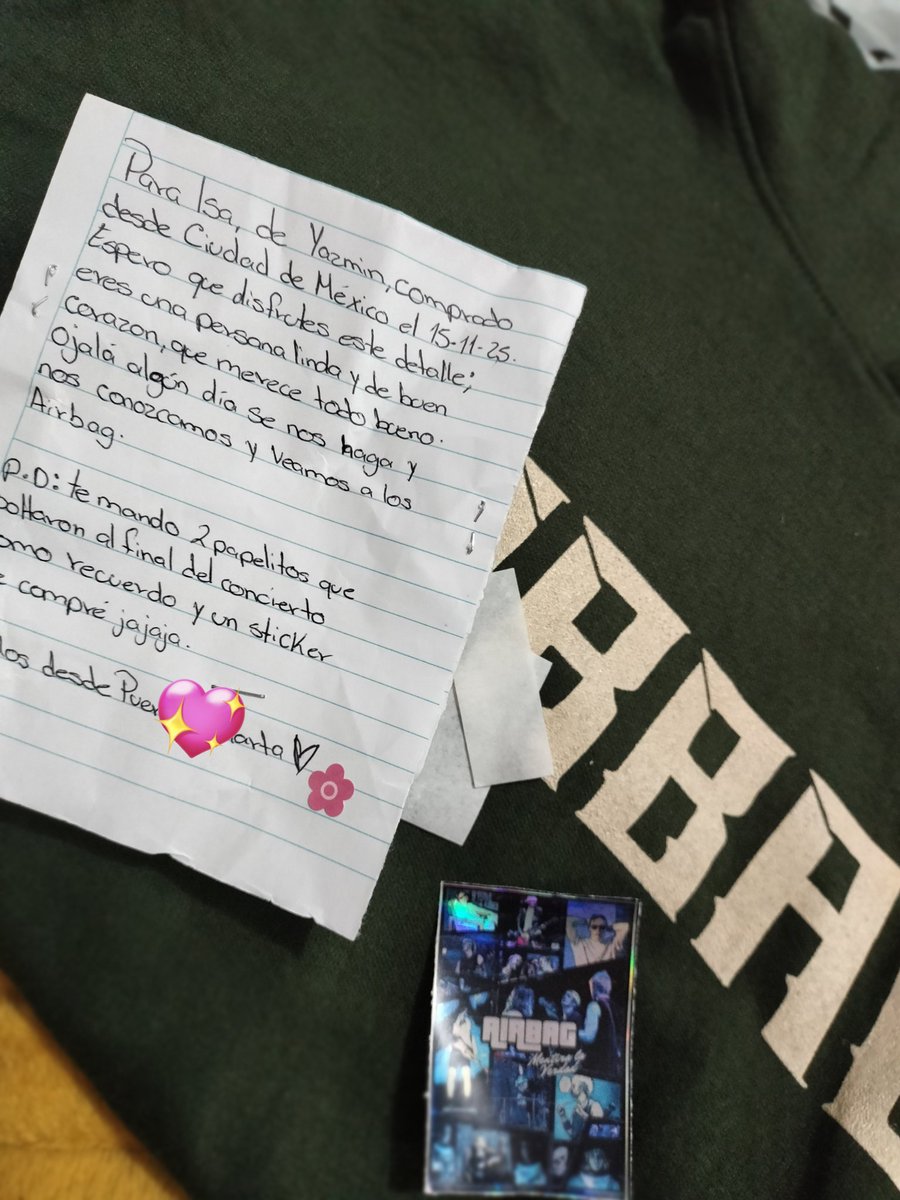 Para Isa, de Yazmin, comprado
desde Ciudad de México el 15-11-25.
Espero que disfrutes este detalle;
eres una persona linda y de buen
corazon, que merece todo bueno.
Ojalá algún día se nos haga y
nos conozcamos y veamos a los
Airbag.
P.D: te mando 2 papelitos que
soltaron al final del concierto
omo recuerdo y un sticker
e compré jajaja.
los desde Puer
arta
BBA
AIRBAG
Mentira la
Verdad